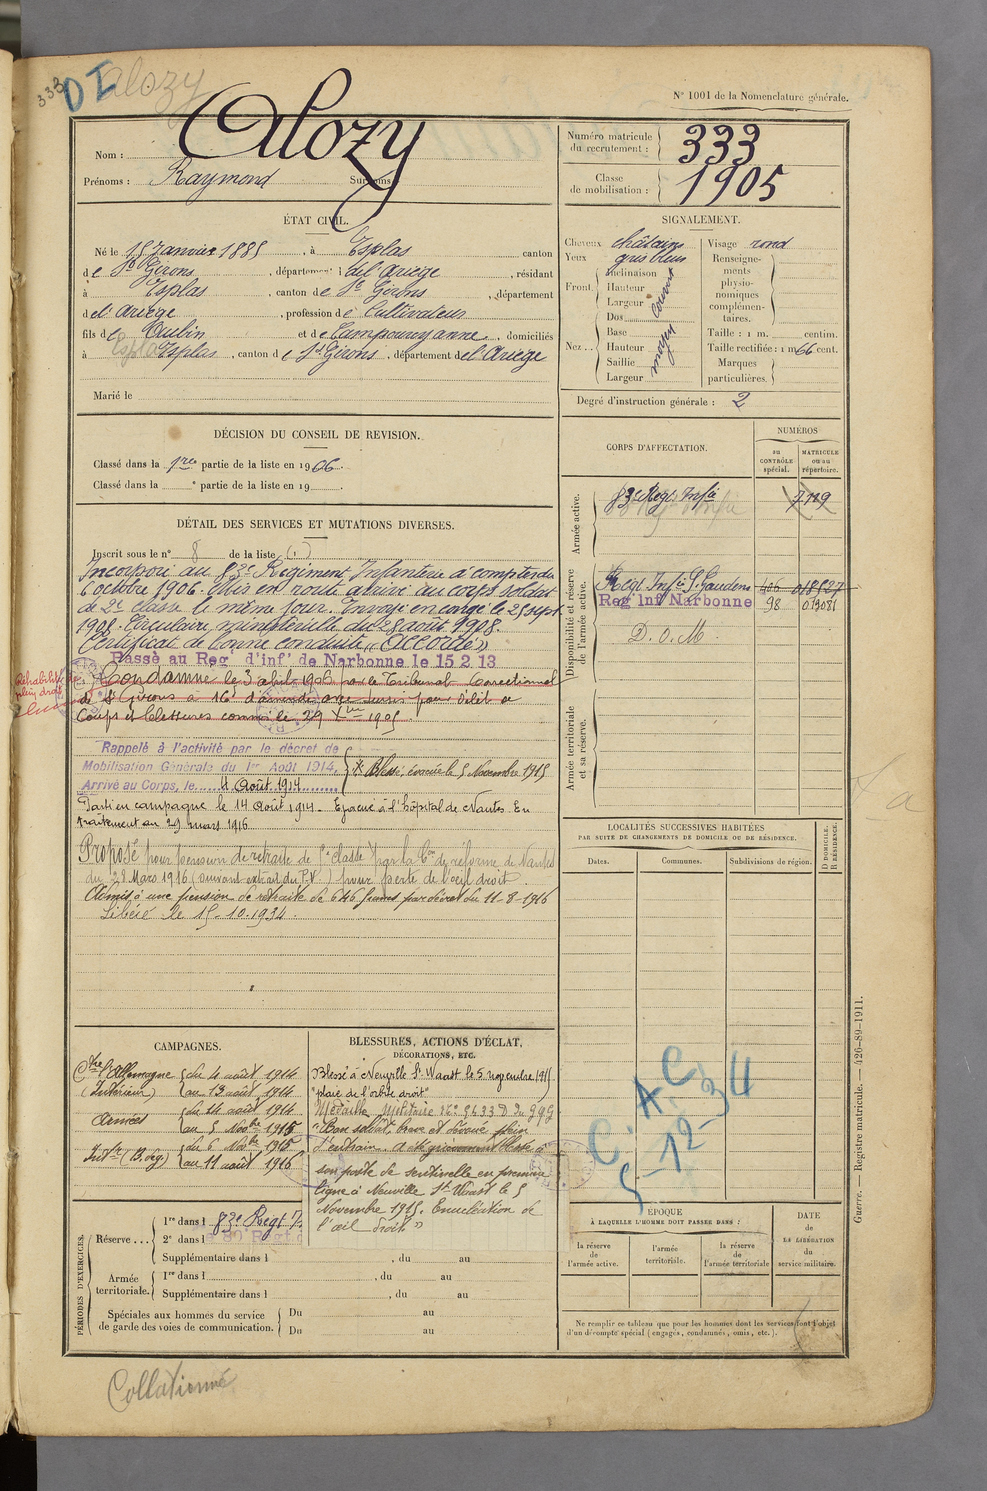 333
D I
alozy
N° 1001 de la Nomenclature générale.
Nom : Alozy
Prénoms : Raymond Surnoms
Numéro matricule du recrutement : 333
Classe de mobilisation : 1905
ÉTAT CIVIL.
Né le 15 Janvier 1885, à Esplas canton
de St Girons, département de l'Ariège, résidant
à Esplas, canton de St Girons, département
de l'Ariège, profession de Cultivateur
fils de Aubin et de Campourcy anne, domiciliés
à Esplas, canton de St Girons, département de l'Ariège
Marié le
SIGNALEMENT.
Cheveux châtains
Yeux gris bleus
Front. Inclinaison
Hauteur
Largeur
couvert
Nez... Dos
Base
Hauteur
Saillie
Largeur
moyen
Visage rond
Renseignements physionomiques complémentaires.
Taille : 1 m. centim.
Taille rectifiée : 1 m 66 cent.
Marques particulières.
Degré d'instruction générale : 2
DÉCISION DU CONSEIL DE REVISION.
Classé dans la 1re partie de la liste en 1906.
Classé dans la e partie de la liste en 19
DÉTAIL DES SERVICES ET MUTATIONS DIVERSES.
Inscrit sous le n° 8 de la liste ( )
Incorporé au 83e Régiment Infanterie à compter du
6 octobre 1906. Mis en route arrivé au corps soldat
de 2e classe le même jour. Envoyé en congé le 25 sept
1908. Circulaire ministérielle du 28 août 1908.
Certificat de bonne conduite "Accordé"
Passé au Reg d'inf de Narbonne le 15.2.13
Réhabilité de plein droit
Condamné le 3 avril 1906 par le Tribunal Correctionnel
de St Girons à 16f d'amende avec sursis pour délit de
Coups et blessures commis le 29 Xbre 1905
Rappelé à l'activité par le décret de
Mobilisation Générale du 1er Août 1914,
Arrivé au Corps, le 4 Août 1914
Blessé, évacué le 5 Novembre 1915
Parti en campagne le 14 Août 1914. Evacué à l'hôpital de Nantes. En
traitement au 29 mars 1916
Proposé pour pension de retraite de classe par la Con de réforme de Nantes
du 28 Mars 1916 (suivant extrait du P.V.) pour perte de l'oeil droit.
Admis à une pension de retraite de 646 francs par décret du 11-8-1916
Libéré le 15-10-1934.
CORPS D'AFFECTATION.
NUMÉROS
au CONTRÔLE spécial.
MATRICULE ou au répertoire.
Armée active.
83e Régt Infie 7119
Disponibilité et réserve de l'armée active.
Régt Infie St Gaudens 406 018527
Reg inf Narbonne 98 013081
D. o. M.
Armée territoriale et sa réserve.
LOCALITÉS SUCCESSIVES HABITÉES
PAR SUITE DE CHANGEMENTS DE DOMICILE OU DE RÉSIDENCE.
Dates. Communes. Subdivisions de région.
D DOMICILE. R RÉSIDENCE.
C.A.C
5-12-34
CAMPAGNES.
Ctre l'Allemagne du 4 août 1914
(Intérieur) au 13 août 1914
Armées du 14 août 1914
au 5 Novbre 1915
Intr (B. Dég.) du 6 Novbre 1915
au 11 août 1916
BLESSURES, ACTIONS D'ÉCLAT,
DÉCORATIONS, ETC.
Blessé à Neuville St Waast le 5 novembre 1915
"plaie de l'orbite droit"
Médaille Militaire No 2433 D du GQG
"Bon soldat, brave et dévoué plein
d'entrain. a été grièvement blessé à
son poste de sentinelle en première
ligne à Neuville St Waast le 5
Novembre 1915. Enucléation de
l'œil droit"
PÉRIODES D'EXERCICES.
Réserve... 1re dans l 83e Régt I.
2e dans l
Supplémentaire dans l , du au
Armée territoriale. 1re dans l , du au
Supplémentaire dans l , du au
Spéciales aux hommes du service de garde des voies de communication. Du au
Du au
ÉPOQUE
À LAQUELLE L'HOMME DOIT PASSER DANS :
la réserve de l'armée active.
l'armée territoriale.
la réserve de l'armée territoriale
DATE de LA LIBÉRATION du service militaire.
Ne remplir ce tableau que pour les hommes dont les services font l'objet
d'un décompte spécial (engagés, condamnés, omis, etc.).
Guerre. — Registre matricule. — 426-89-1911.
Collationné